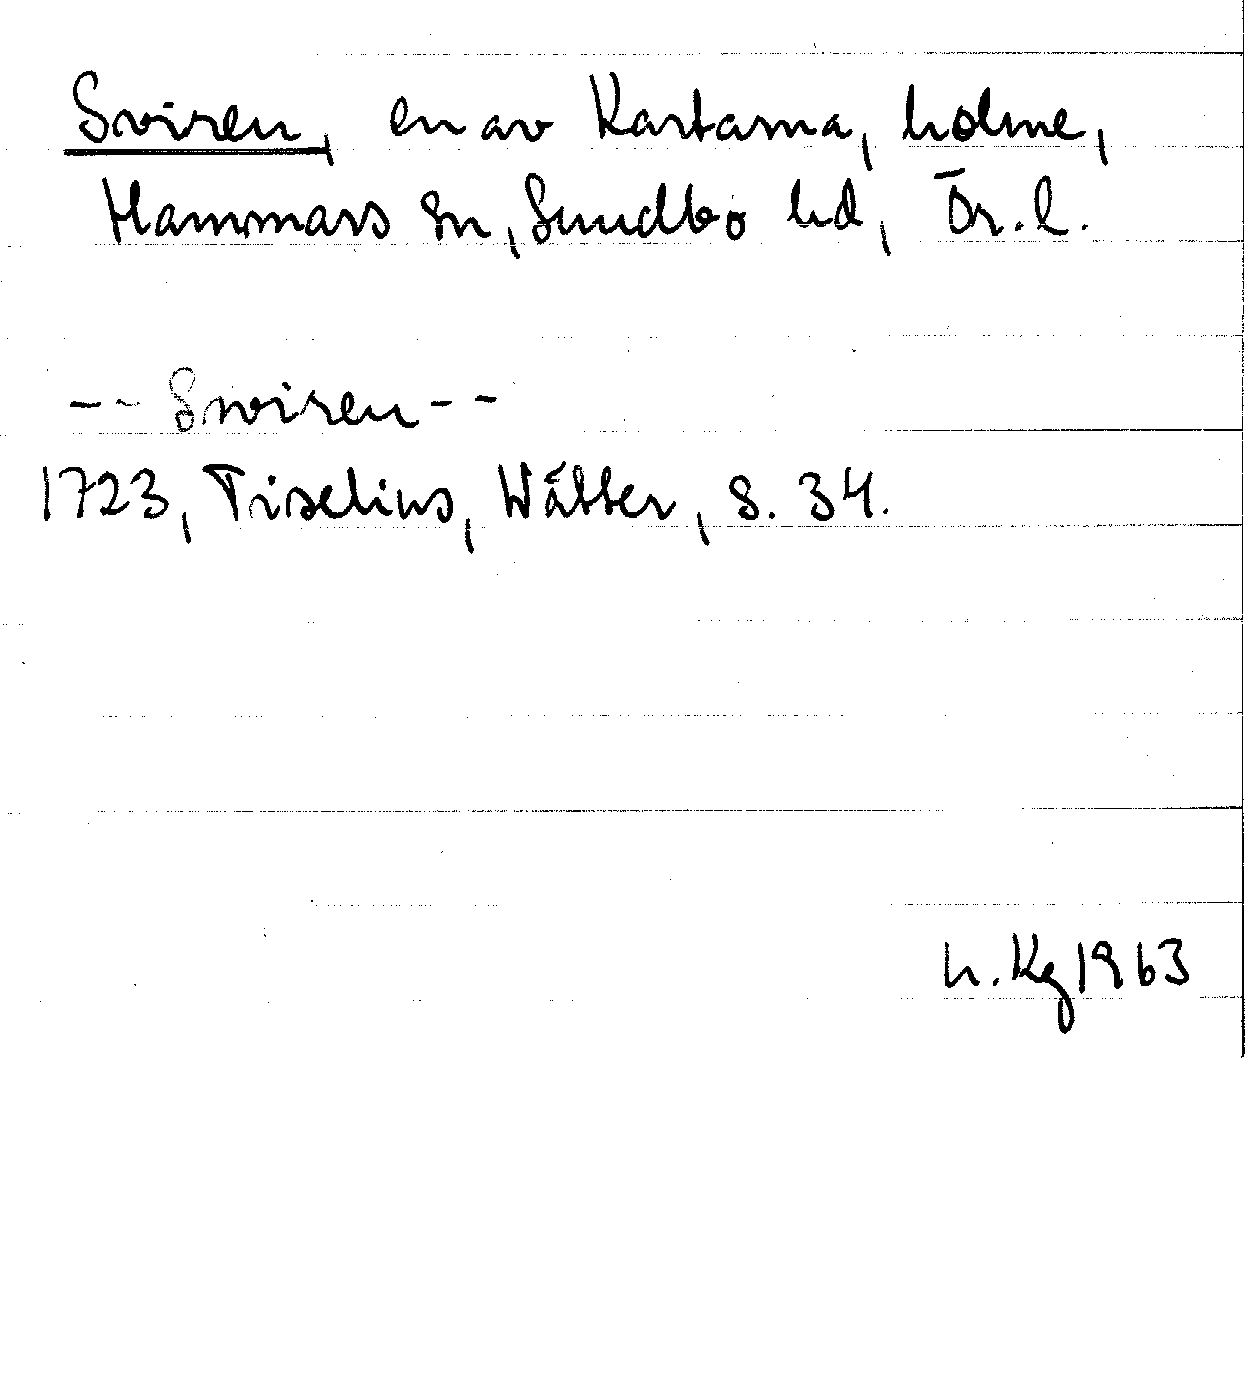 Sviren, en av Kartarna, holme,
Hammars sn, Sundbo hd, Ör. l.
-- Swiren --
1723, Tiselius, Wätter, s. 34.
h. Kg 1963